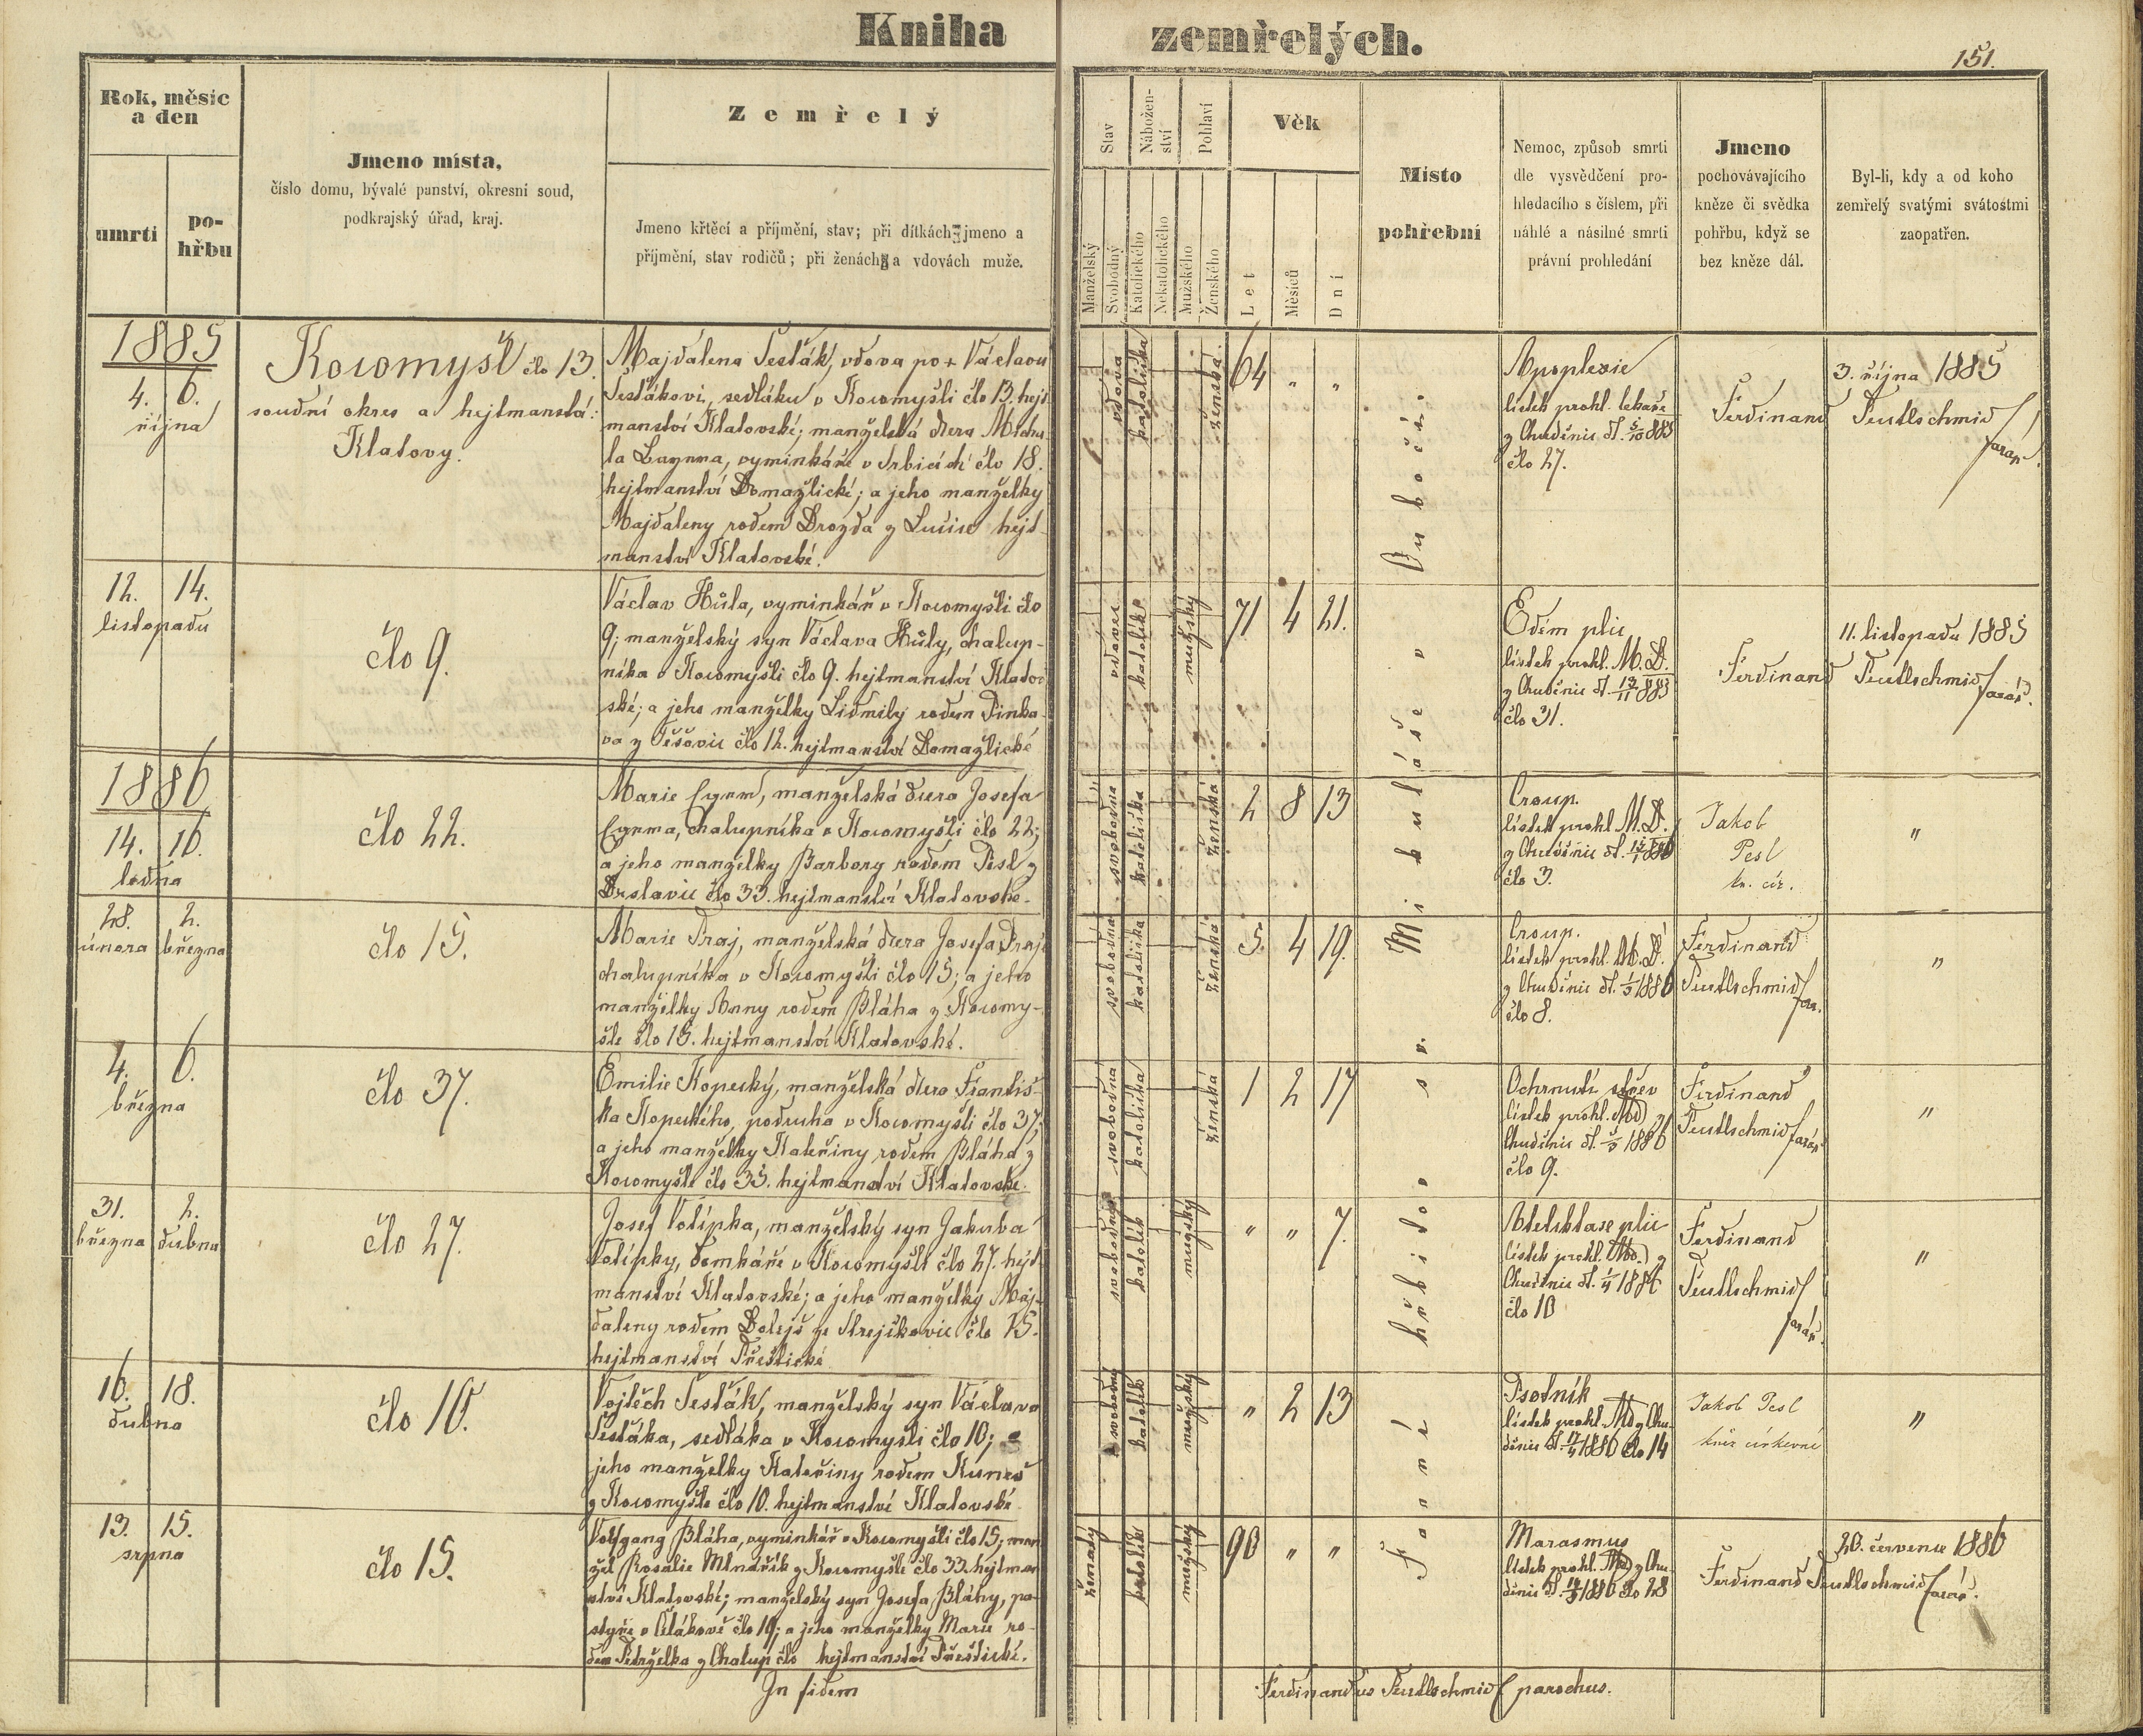 Kniha zemřelých.
151.
Rok, měsíc
a den
umrtí
po-
hřbu
Jmeno místa,
číslo domu, bývalé panství, okresní soud,
podkrajský úřad, kraj.
Zemřelý
Jmeno křtěcí a příjmění, stav; při dítkách jmeno a
příjmění, stav rodičů; při ženách a vdovách muže.
Stav
Nábožen-
ství
Pohlaví
Manželský
Svobodný
Katolického
Nekatolického
Mužského
Ženského
Věk
Let
Měsíců
Dní
Místo
pohřební
Nemoc, způsob smrti
dle vysvědčení pro-
hledacího s číslem, při
náhlé a násilné smrti
právní prohledání
Jmeno
pochovávajícího
kněze či svědka
pohřbu, když se
bez kněze dál.
Byl-li, kdy a od koho
zemřelý svatými svátostmi
zaopatřen.
Farní hřbitov sv. Mikuláše v Dubočí.
1885
4. 6.
října
Kocomyšl člo 13.
soudní okres a hejtmanství:
Klatovy.
Majdalena Šesták, vdova po + Václavu
Šestákovi, sedláku v Kocomyšli člo 13. hejt
manství Klatovské; manželská dcera Micha-
la , vyminkáře v Srbicích člo 18.
hejtmanství Domažlické; a jeho manželky
Majdaleny rodem Drozda z Lučice hejt-
manství Klatovské.
vdova
katolička
ženská.
64 " "
Apoplexie
lístek prohl. lekaře
z Chuděnic dt. 5/10 885
člo 27.
Ferdinand Teutlschmid farář.
3. října 1885
12. 14.
listopadu
člo 9.
Václav Hůla, vyminkář v Kocomyšli člo
9; manželský syn Václava Hůly, chalup-
níka v Kocomyšli člo 9. hejtmanství Klatov
ské; a jeho manželky Lidmily rodem Pinka-
va z Těšovic člo 12. hejtmanství Domažlické
vdovec
katolík
mužský
71 4 21.
Edém plic
lístek prohl. M. D.
z Chuděnic dt. 13/11 885
člo 31.
Ferdinand Teutlschmid farář.
11. listopadu 1885
1886
14. 16.
ledna
člo 22.
Marie , manželská dcera Josefa
, chalupníka v Kocomyšli člo 22;
a jeho manželky Barbory rodem Pesl z
Drslavic člo 33. hejtmanství Klatovské.
svobodna
katolička
ženská
2 8 13
Croup.
lístek prohl. M. D.
z Chuděnic dt. 15/1 886
člo 3.
Jakob
Pesl
kn. cír.
"
28. 2.
února března
člo 15.
Marie Praj, manželská dcera Josefa Praje
chalupníka v Kocomyšli člo 15; a jeho
manželky Anny rodem Bláha z Kocomy-
šle člo 15. hejtmanství Klatovské.
svobodna
katolička
ženská
5. 4 19.
Croup.
lístek prohl. M. D.
z Chuděnic dt. 1/3 1886
člo 8.
Ferdinand
Teutlschmid far.
"
4. 6.
března
člo 37.
Emilie Kopecký, manželská dcera Františ-
ka Kopeckého, podruha v Kocomyšli člo 37;
a jeho manželky Kateřiny rodem Bláha z
Kocomyšle člo 35. hejtmanství Klatovské.
svobodná
katolička
ženská
1 2 17
Ochrnutí střev
lístek prohl. MD z
Chuděnic dt. 5/3 1886
člo 9.
Ferdinand
Teutlschmid farář
"
31. 2.
března dubna
člo 27.
Josef Volípka, manželský syn Jakuba
Volípky, domkáře v Kocomyšli člo 27. hejt
manství Klatovské; a jeho manželky Maj-
daleny rodem Bolejš ze Strejčkovic člo 15.
hejtmanství Přeštické
svobodný
katolík
mužský
" " 7.
Atelektase plic
lístek prohl. MD. z
Chuděnic dt. 1/4 1886
člo 10
Ferdinand
Teutlschmid
farář.
"
16. 18.
dubna
člo 10.
Vojtěch Šesták, manželský syn Václava
Šestáka, sedláka v Kocomyšli člo 10; a
jeho manželky Kateřiny rodem Kuneš
z Kocomyšle člo 10. hejtmanství Klatovské
svobodný
katolík
mužský
" 2 13
Psotník
lístek prohl. MD z Chu-
děnic dt. 17/4 1886 člo 14
Jakob Pesl
kněz církevní
"
13. 15.
srpna
člo 15.
Volfgang Bláha, vyminkář v Kocomyšli člo 15; man
žel Rosalie Mlnařík z Kocomyšle člo 33. hejtman
ství Klatovské; manželský syn Josefa Bláhy, pa-
stýře v člo 19; a jeho manželky Marie ro-
dem Petrželka z Chalup člo hejtmanství Přeštické.
ženatý
katolík
mužský
90 " "
Marasmus
lístek prohl. MD z Chu-
děnic dt. 14/8 1886 člo 28
Ferdinand Teutlschmid farář.
20. červenec 1886
In fidem Ferdinandus Teutlschmid parochus.